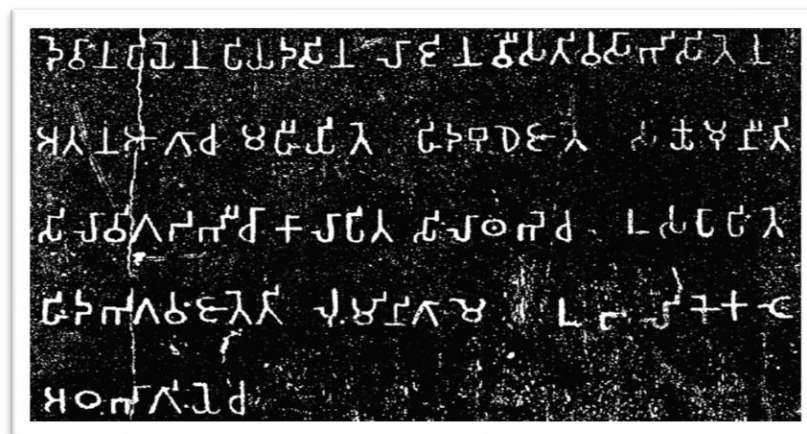 𑀤𑁂𑀯𑀸𑀦𑀧𑀺𑀬𑁂𑀦 𑀧𑀺𑀬𑀤𑀲𑀺𑀦 𑀮𑀸𑀚𑀺𑀦 𑀯𑀻𑀲𑀢𑀺𑀯𑀲𑀸𑀪𑀺𑀲𑀺𑀢𑁂𑀦
𑀅𑀢𑀦 𑀆𑀕𑀸𑀘 𑀫𑀳𑀻𑀬𑀺𑀢𑁂 𑀳𑀺𑀤 𑀩𑀼𑀥𑁂 𑀚𑀸𑀢𑁂 𑀲𑀓𑁆𑀬𑀫𑀼𑀦𑀺𑀢𑀺
𑀲𑀺𑀮𑀸𑀯𑀺𑀕𑀟𑀪𑀺𑀘𑀸 𑀓𑀸𑀮𑀸𑀧𑀺𑀢 𑀲𑀺𑀮𑀸𑀣𑀪𑁂𑀘 𑀉𑀲𑀧𑀸𑀧𑀺𑀢𑁂
𑀳𑀺𑀤 𑀪𑀕𑀯𑀁 𑀚𑀸𑀢𑁂𑀢𑀺 𑀮𑀼𑀁𑀫𑀺𑀦𑀺 𑀕𑀸𑀫𑁂 𑀉𑀩𑀮𑀺𑀓𑁂 𑀓𑀝𑁂
𑀅𑀞𑀪𑀸𑀕𑀺𑀬𑁂 𑀘